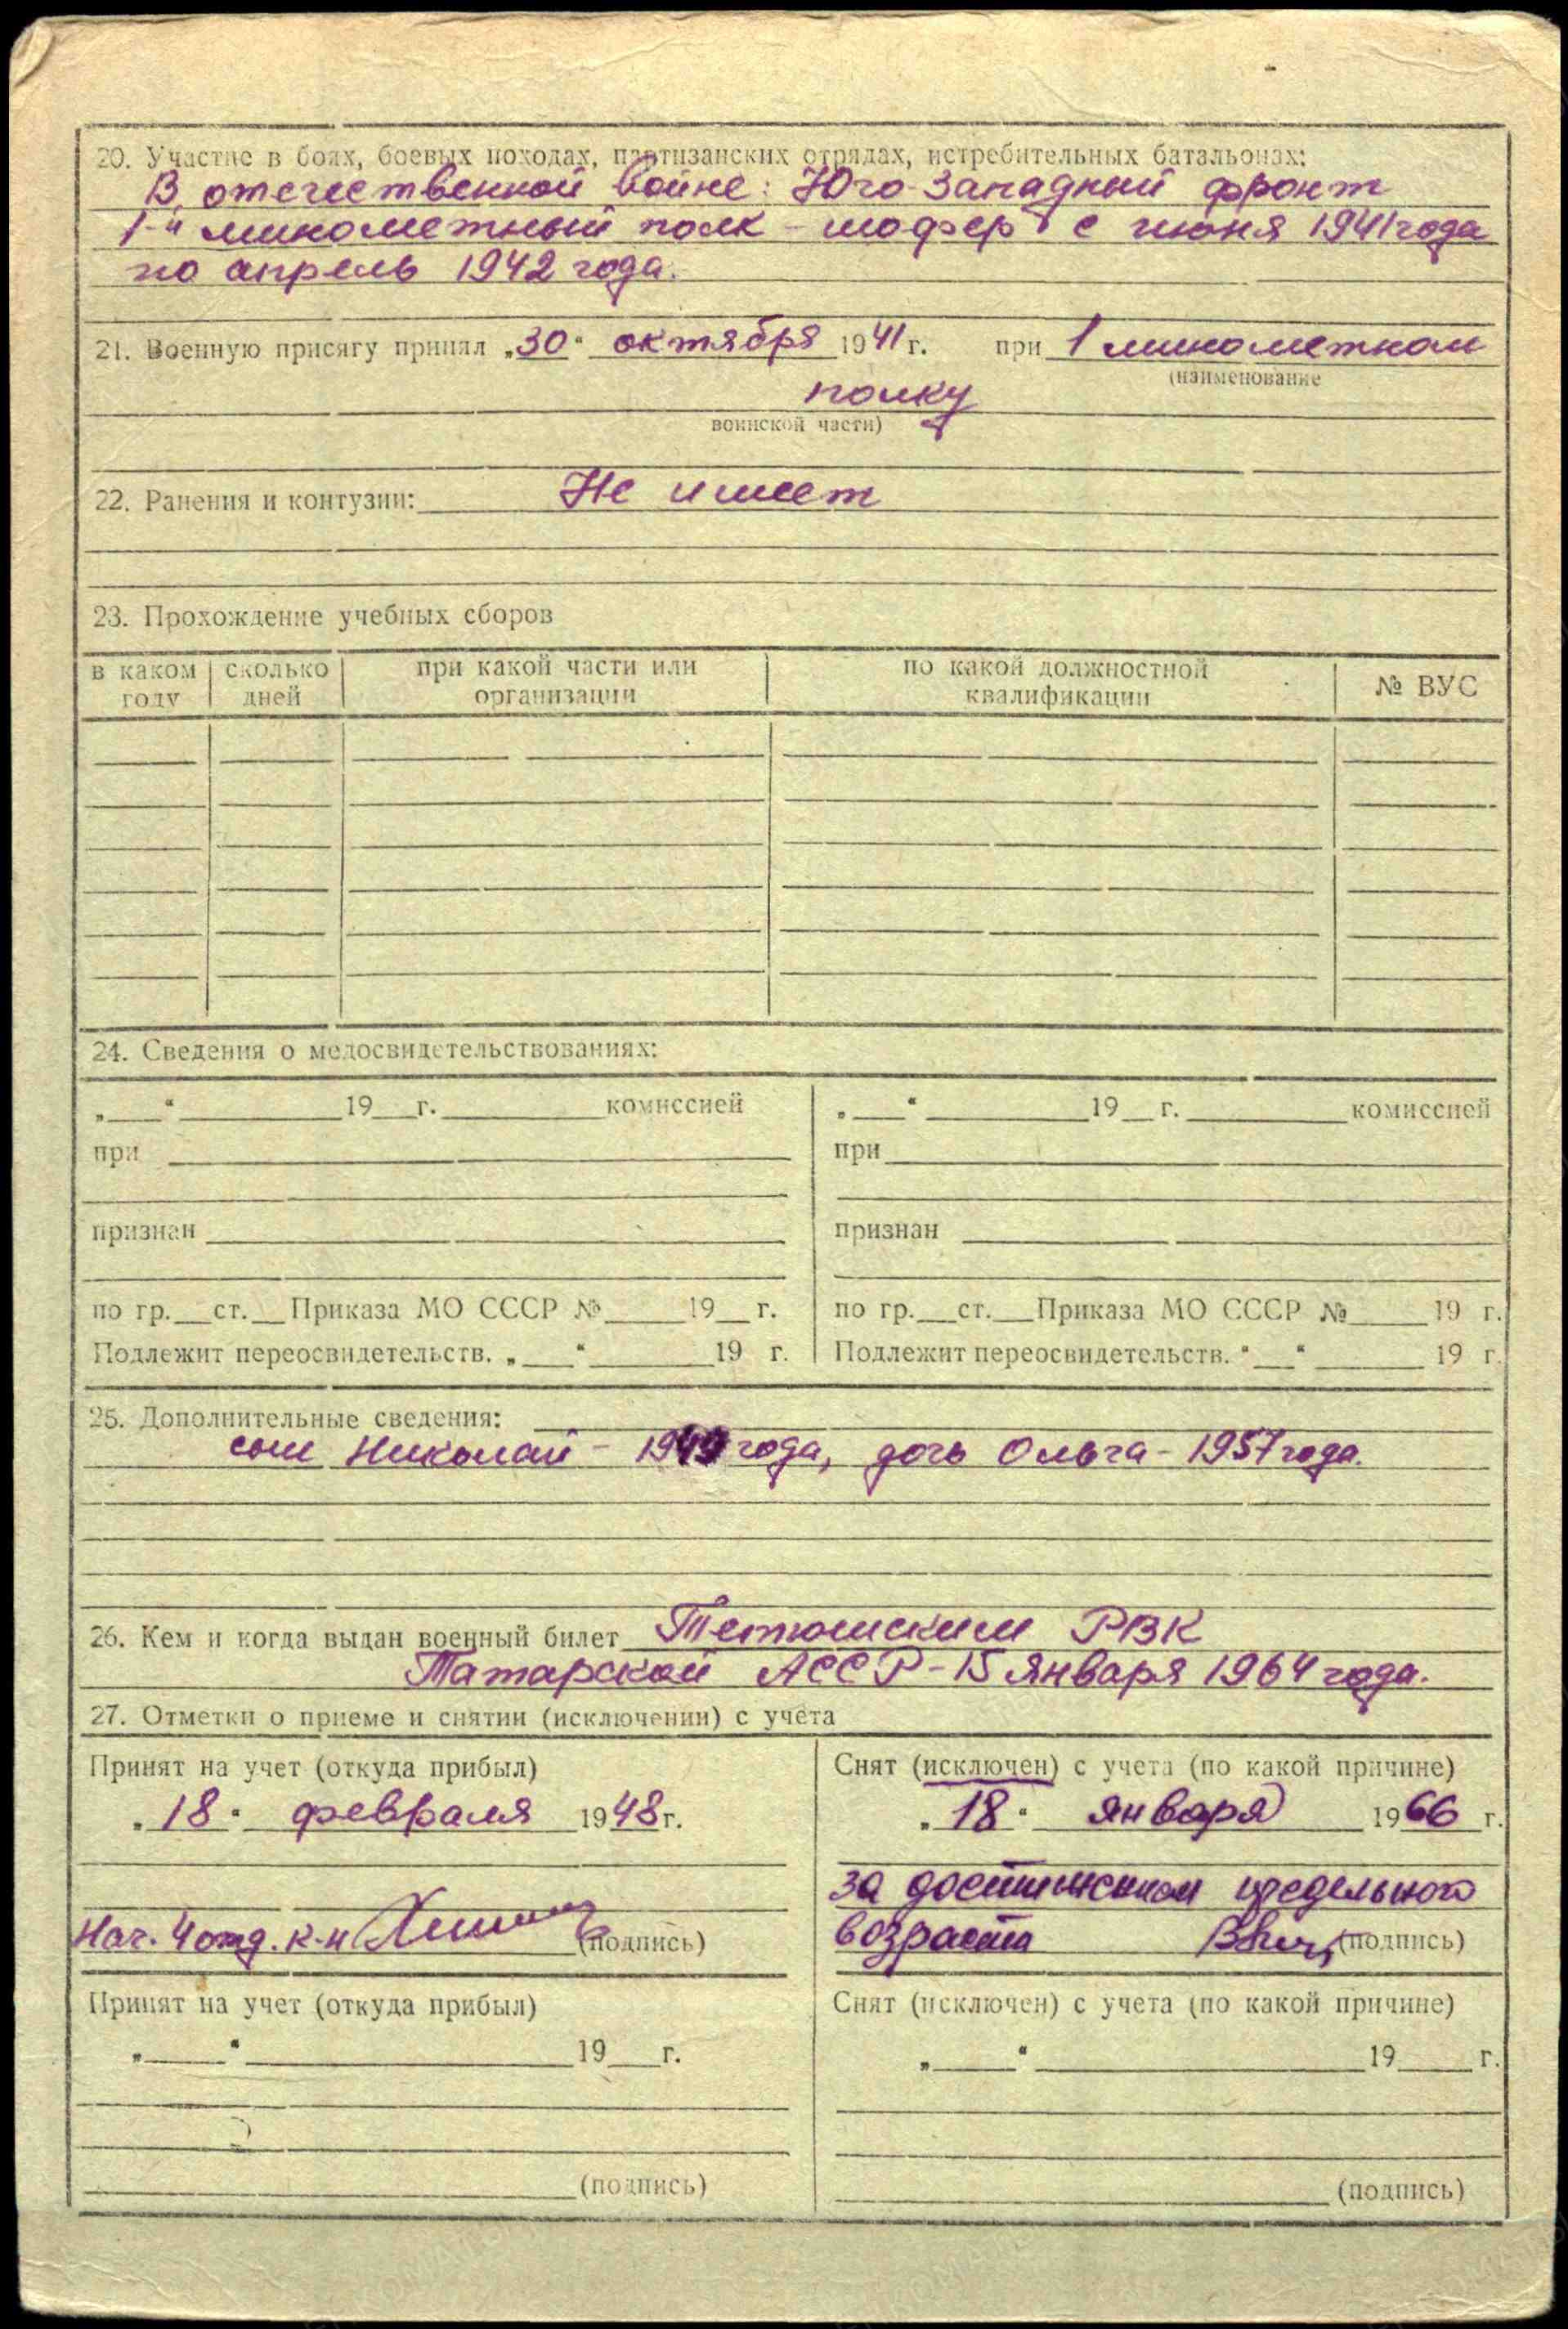 20. Участие в боях, боевых походах, партизанских отрядах, истребительных батальонах:
В отечественной войне: Юго-Западный фронт
1-й минометный полк - шофер с июня 1941 года
по апрель 1942 года.
21. Военную присягу принял „30“ октября 1941 г. при 1 минометном
(наименование
полку
воинской части)
22. Ранения и контузии: Не имеет
23. Прохождение учебных сборов
в каком году | сколько дней | при какой части или организации | по какой должностной квалификации | № ВУС
24. Сведения о медосвидетельствованиях:
„___“ ______ 19__ г. ______ комиссией | „___“ ______ 19__ г. ______ комиссией
при | при
признан | признан
по гр.__ст.__Приказа МО СССР №____19__г. | по гр.__ст.__Приказа МО СССР №____19 г.
Подлежит переосвидетельств. „___“ ______19 г. | Подлежит переосвидетельств. “__“ ______ 19 г.
25. Дополнительные сведения:
сын Николай - года, дочь Ольга - 1957 года.
26. Кем и когда выдан военный билет Тетюшским РВК
Татарской АССР - 15 января 1964 года.
27. Отметки о приеме и снятии (исключении) с учёта
Принят на учет (откуда прибыл) | Снят (исключен) с учета (по какой причине)
„18“ февраля 1948 г. | „18“ января 1966 г.
за достижением предельного
Нач. 4 отд. к-н (подпись) | возраста (подпись)
Принят на учет (откуда прибыл) | Снят (исключен) с учета (по какой причине)
„___“ ______ 19__г. | „___“ ______ 19__г.
(подпись) | (подпись)